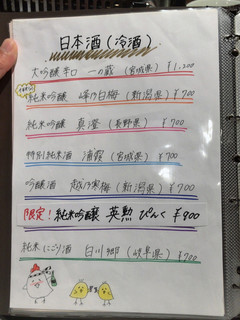 日本酒(冷酒)
大吟醸辛口 一の蔵 (宮城県) ¥1,200
純米吟醸 峰乃白梅 (新潟県) ¥700
純米吟醸 真澄 (長野県) ¥700
特別純米酒 浦霞 (宮城県) ¥700
吟醸酒 越乃寒梅 (新潟県) ¥700
限定! 純米吟醸 英勲 ぴんく ¥900
純米にごり酒 白川郷 (岐阜県) ¥700